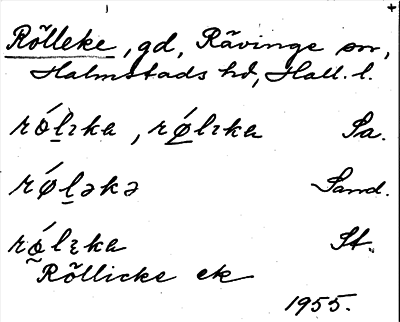 Rõlleke, gd, Rävinge sn,
Halmstads hd, Hall. l.
rǿlıka, rǿ̱lıka Sa.
rǿḻəkə Sand.
rǿ̰lıka St.
Rõllicke ek
1955.